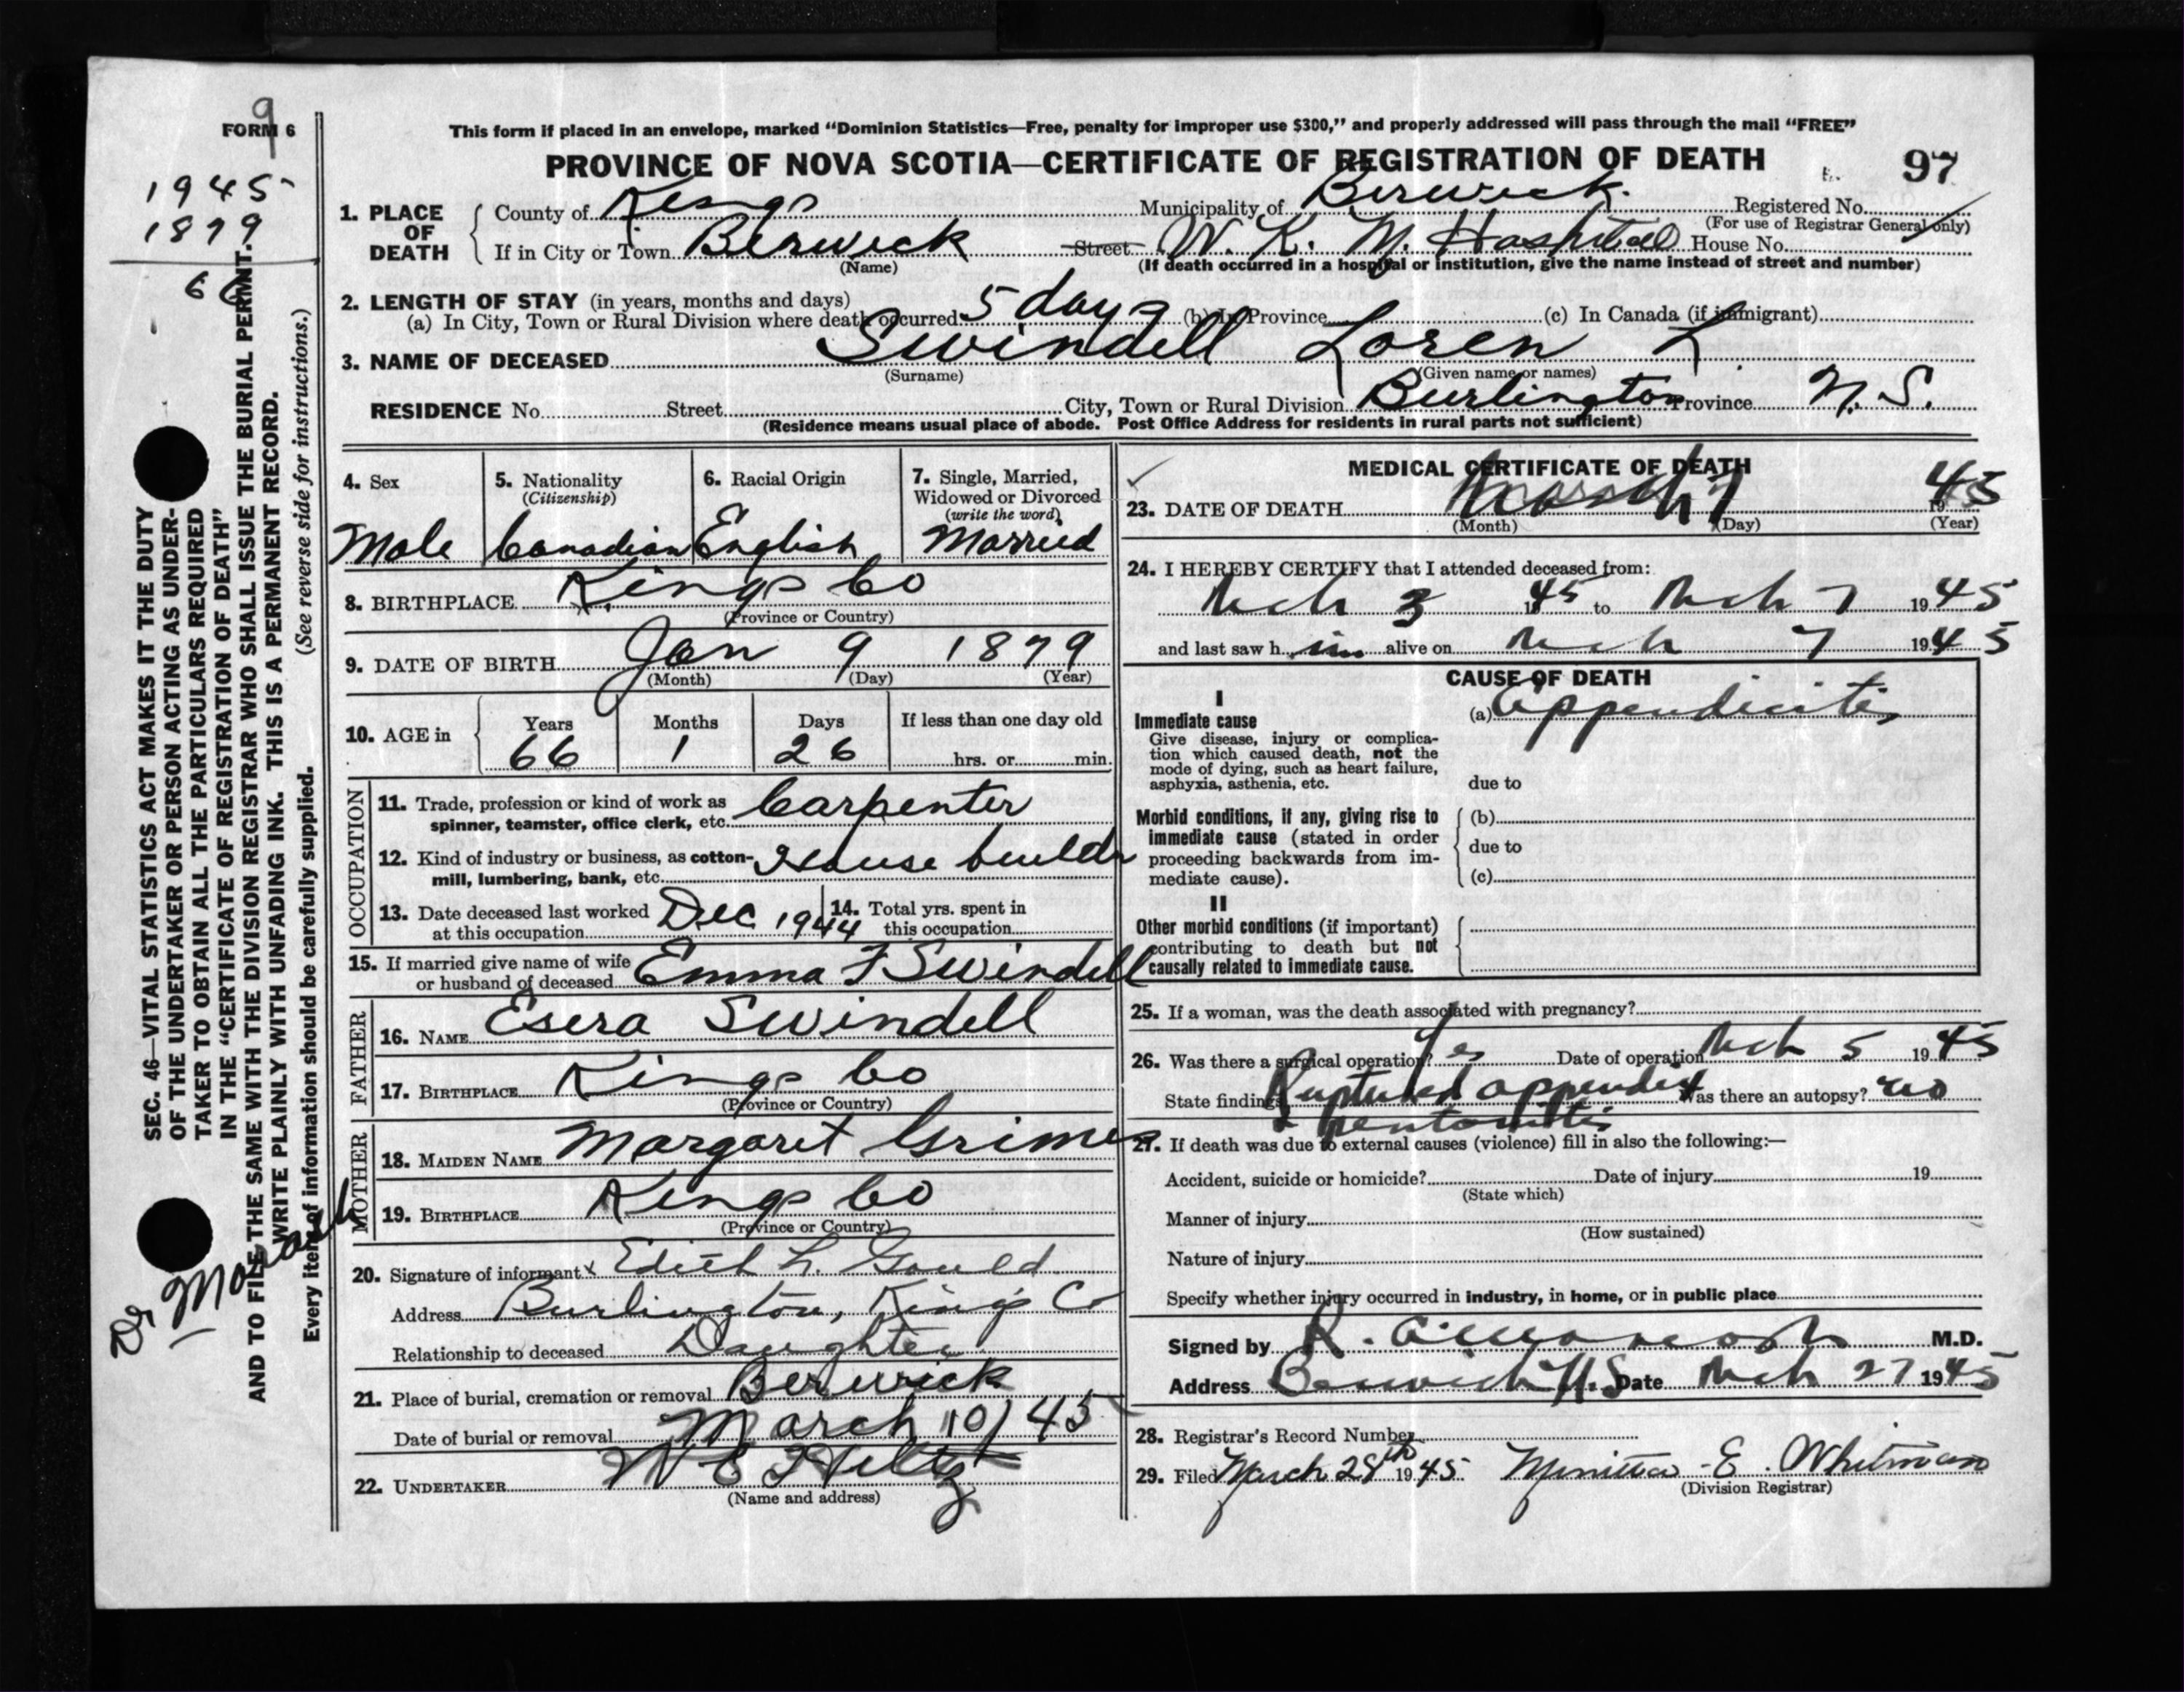 9
FORM 6
1945
1879
66
This form if placed in an envelope, marked "Dominion Statistics—Free, penalty for improper use $300," and properly addressed will pass through the mail "FREE"
PROVINCE OF NOVA SCOTIA—CERTIFICATE OF REGISTRATION OF DEATH 97
1. PLACE OF DEATH County of Kings Municipality of Berwick. Registered No.
(For use of Registrar General only)
If in City or Town Berwick Street W. K. M. Hospital House No.
(Name) (If death occurred in a hospital or institution, give the name instead of street and number)
2. LENGTH OF STAY (in years, months and days)
(a) In City, Town or Rural Division where death occurred 5 days (b) In Province (c) In Canada (if immigrant)
3. NAME OF DECEASED Swindell Loren L
(Surname) (Given name or names)
RESIDENCE No. Street City, Town or Rural Division Burlington Province N. S.
(Residence means usual place of abode. Post Office Address for residents in rural parts not sufficient)
4. Sex 5. Nationality (Citizenship) 6. Racial Origin 7. Single, Married, Widowed or Divorced (write the word)
Male Canadian English Married
8. BIRTHPLACE Kings Co
(Province or Country)
9. DATE OF BIRTH Jan 9 1879
(Month) (Day) (Year)
10. AGE in Years Months Days If less than one day old
66 1 26 hrs. or min.
OCCUPATION
11. Trade, profession or kind of work as Carpenter
spinner, teamster, office clerk, etc.
12. Kind of industry or business, as cotton- House buildr
mill, lumbering, bank, etc.
13. Date deceased last worked at this occupation Dec 1944 14. Total yrs. spent in this occupation
15. If married give name of wife or husband of deceased Emma F Swindell
FATHER
16. NAME Esera Swindell
17. BIRTHPLACE Kings Co
(Province or Country)
MOTHER
18. MAIDEN NAME Margaret Grimes
19. BIRTHPLACE Kings Co
(Province or Country)
20. Signature of informant x Edith L. Gould
Address Burlington, Kings Co
Relationship to deceased Daughter
21. Place of burial, cremation or removal Berwick
Date of burial or removal March 10/45
22. UNDERTAKER W E Hiltz
(Name and address)
MEDICAL CERTIFICATE OF DEATH
23. DATE OF DEATH March 7 1945
(Month) (Day) (Year)
24. I HEREBY CERTIFY that I attended deceased from:
Mch 3 1945 to Mch 7 1945
and last saw h im alive on Mch 7 1945
CAUSE OF DEATH
I
Immediate cause (a) Appendicitis
Give disease, injury or complication which caused death, not the mode of dying, such as heart failure, asphyxia, asthenia, etc. due to
Morbid conditions, if any, giving rise to immediate cause (stated in order proceeding backwards from immediate cause). (b)
due to
(c)
II
Other morbid conditions (if important) contributing to death but not causally related to immediate cause.
25. If a woman, was the death associated with pregnancy?
26. Was there a surgical operation? Yes Date of operation Mch 5 1945
State findings Ruptured appendix Was there an autopsy? no
peritonitis
27. If death was due to external causes (violence) fill in also the following:—
Accident, suicide or homicide? Date of injury 19
(State which)
Manner of injury
(How sustained)
Nature of injury
Specify whether injury occurred in industry, in home, or in public place
Signed by R. M.D.
Address Berwick N.S Date Mch 27 1945
28. Registrar's Record Number
29. Filed March 28th 1945 E. Whitman
(Division Registrar)
SEC. 46—VITAL STATISTICS ACT MAKES IT THE DUTY
OF THE UNDERTAKER OR PERSON ACTING AS UNDER-
TAKER TO OBTAIN ALL THE PARTICULARS REQUIRED
IN THE "CERTIFICATE OF REGISTRATION OF DEATH"
AND TO FILE THE SAME WITH THE DIVISION REGISTRAR WHO SHALL ISSUE THE BURIAL PERMIT.
WRITE PLAINLY WITH UNFADING INK. THIS IS A PERMANENT RECORD.
Every item of information should be carefully supplied. (See reverse side for instructions.)
Dr